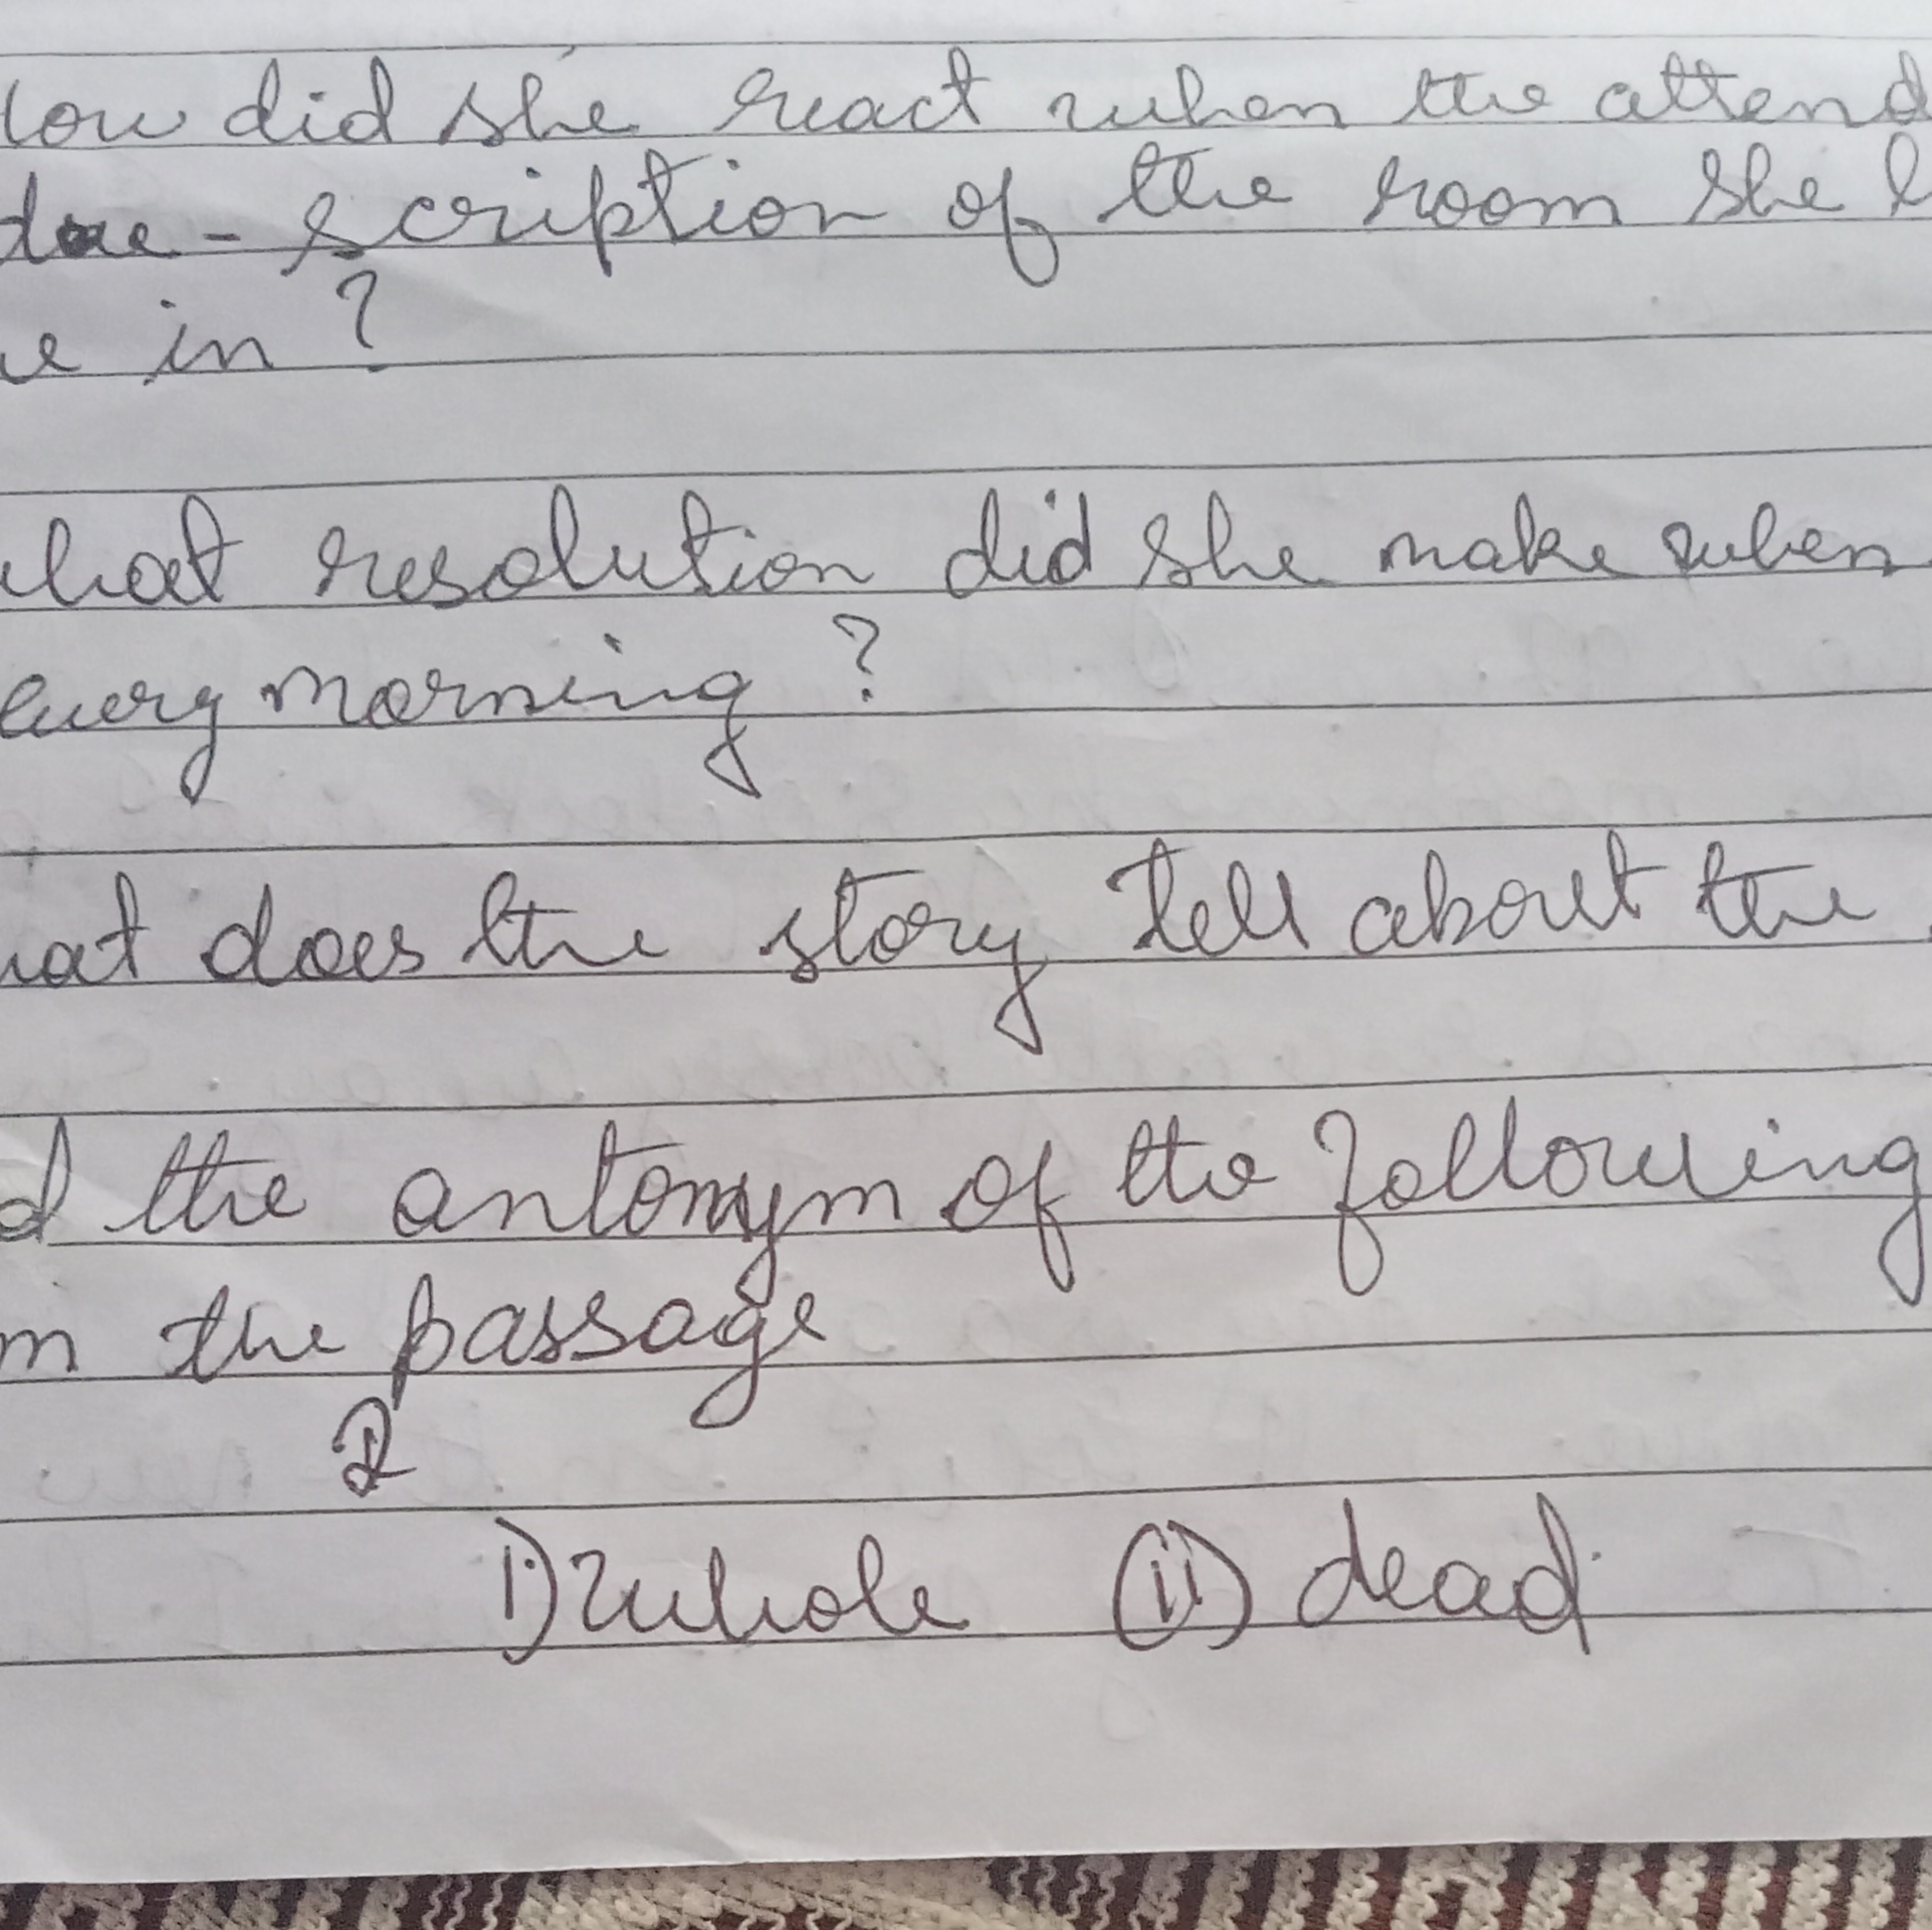 low did she react when the attend
doe - scription of the room she l
e in ?
what resolution did she make when
every morning ?
hat does the story tell about the
d the antonym of the following
m the passage
i) whole (ii) dead